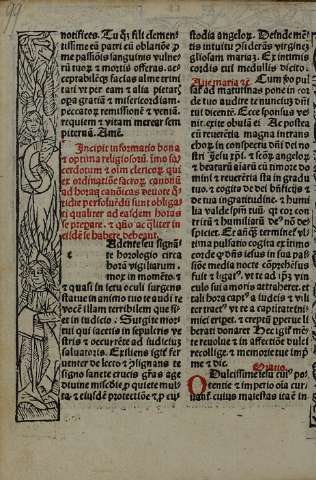 99
notifices. Tu q̃ʒ fili clemen-
tissime eā patri eū oblatiōe ꝓ
me passiōis sanguinis vulne/
rū tuoꝝ ⁊ mortis offeras. ac-
ceptabilēqʒ facias alme trini
tati vt per eam ⁊ alia pietaꝭ
oꝑa gratiā ⁊ misericordiam.
peccatoꝝ remissionē ⁊ veniā.
requiem ⁊ vitam
piternā. Amē.
Incipit informatio bona
⁊ optima religiosoꝝ.
cerdotum ⁊ oīm clericoꝝ qui
ex ordinatiōe sacroꝝ canonū
ad horas canōicas deuote
tidie persoluēdū sunt obligati
qualiter ad easdem horas
se prepare. ⁊ quō
eisdē se habere debeant.
te horologio circa
horā vigiliarum.
mor in momēto ⁊
⁊ quasi in ictu oculi surgens
statue in animo tuo te audire
vocē illam terribilem que fi-
et in iudicio. Surgite mor-
tui qui iacetis in sepulcris ve
stris ⁊ occurrēte ad iudiciū
saluatoris. Exsiens igit̃ fer
uenter de lecto ⁊ ꝓsignans te
signo sancte crucis gr̃as age
diuine misc̃die ꝓ quiete mul-
ta ⁊ eiusdē protectiōe ⁊ ꝓ cu-
stodia angeloꝝ. Deinde men-
tis intuitu ꝓsiderās virginē
gloriosam mariā. Ex intimis
cordis tui medullis dicito.
Aue maria ⁊c̃. Cum ꝟo pul
sat̃ ad maturinas pone in cor
de tuo audire te nunciuꝫ dn̄i
tui dicentē. Ecce sponsus ve
nit. exite obuiā ei. Ac postea
cū reuerētia magna intrans
chorū in conspectu dn̄i dei no
stri Jesu xp̄i. ⁊ scōꝝ angeloꝝ
⁊ beatarū aīarū cū timore do
mini ⁊ reuerētia sta in gradu
tuo. ⁊ cogita de dei bn̄ficijs ⁊
de tua ingratitudine. ⁊ humi
lia valde
tritū ⁊ humiliatū de⁹ nō de-
spiciet. Et quādo terminet̃ vl
tima pulsatio cogita ex timo
corde ꝙ dn̄s iesus in sua pas
siōe media nocte cōprehēsus
fuit ⁊ ligat⁹. vt te ad ip̄ꝫ vin
culo sui amoris attraheret. et
tali hora capt⁹ a iudeis ⁊ vili-
ter tract⁹. vt te a captiuitate ini-
mici eriperet. crepera libe-
berati donaret. Hec igit̃ mē-
te reuolue ⁊ in affectiōe dulcē
recollige. ⁊ memorie tue imp̄-
me ⁊ dic. Oratio.
O Dulcissime iesu cui⁹ po-
tentie ⁊ imperio oīa cur-
uant̃. cuius maiestas ita ē in